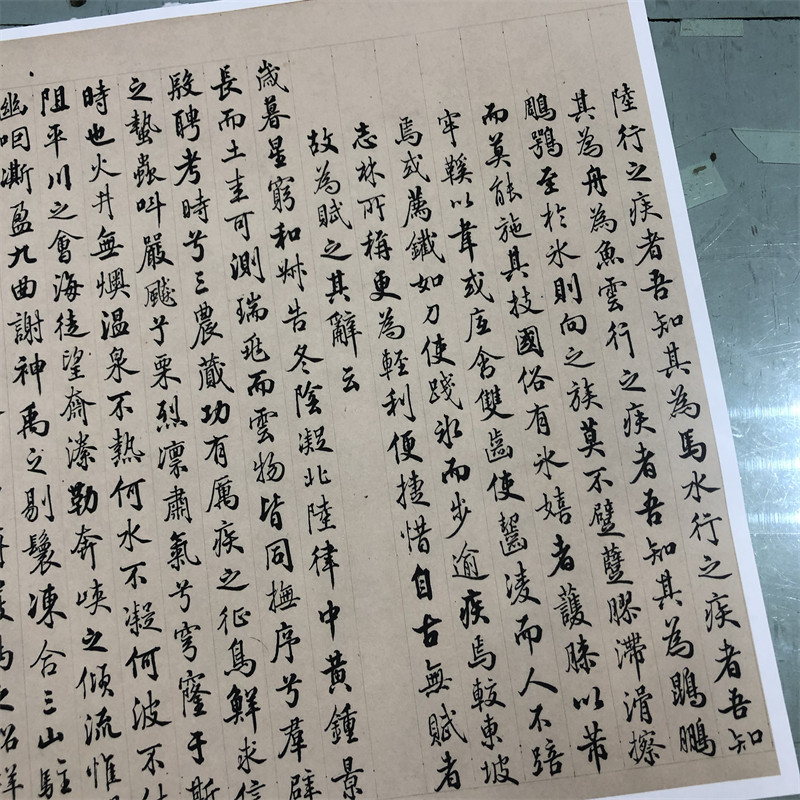 陸行之疾者吾知其為馬水行之疾者吾知
其為舟為魚雲行之疾者吾知其為鵾鵬
鵰鶚至於氷則向之族莫不躄躠膠滯滑擦
而莫能施其技國俗有氷嬉者護膝以芾
牢鞵以韋或底含雙齒使齧凌而人不踣
焉或薦鐵如刀使踐氷而步逾疾焉較東坡
志林所稱更為輕利便捷惜自古無賦者
故為賦之其辭云
歲暮星窮和叔告冬陰凝北陸律中黃鍾景
長而土圭可測瑞兆而雲物皆同撫序兮羣辟
殷聘考時兮三農蕆功有厲疾之征鳥鮮求信
之蟄蟲叫嚴飈兮栗烈凛肅氣兮穹窿于斯
時也火井無燠溫泉不熱何水不凝何波不
阻平川之會海徒望齊瀠勒奔峽之傾流惟
幽咽澌盈九曲謝神禹之剔鬟凍合三山駐